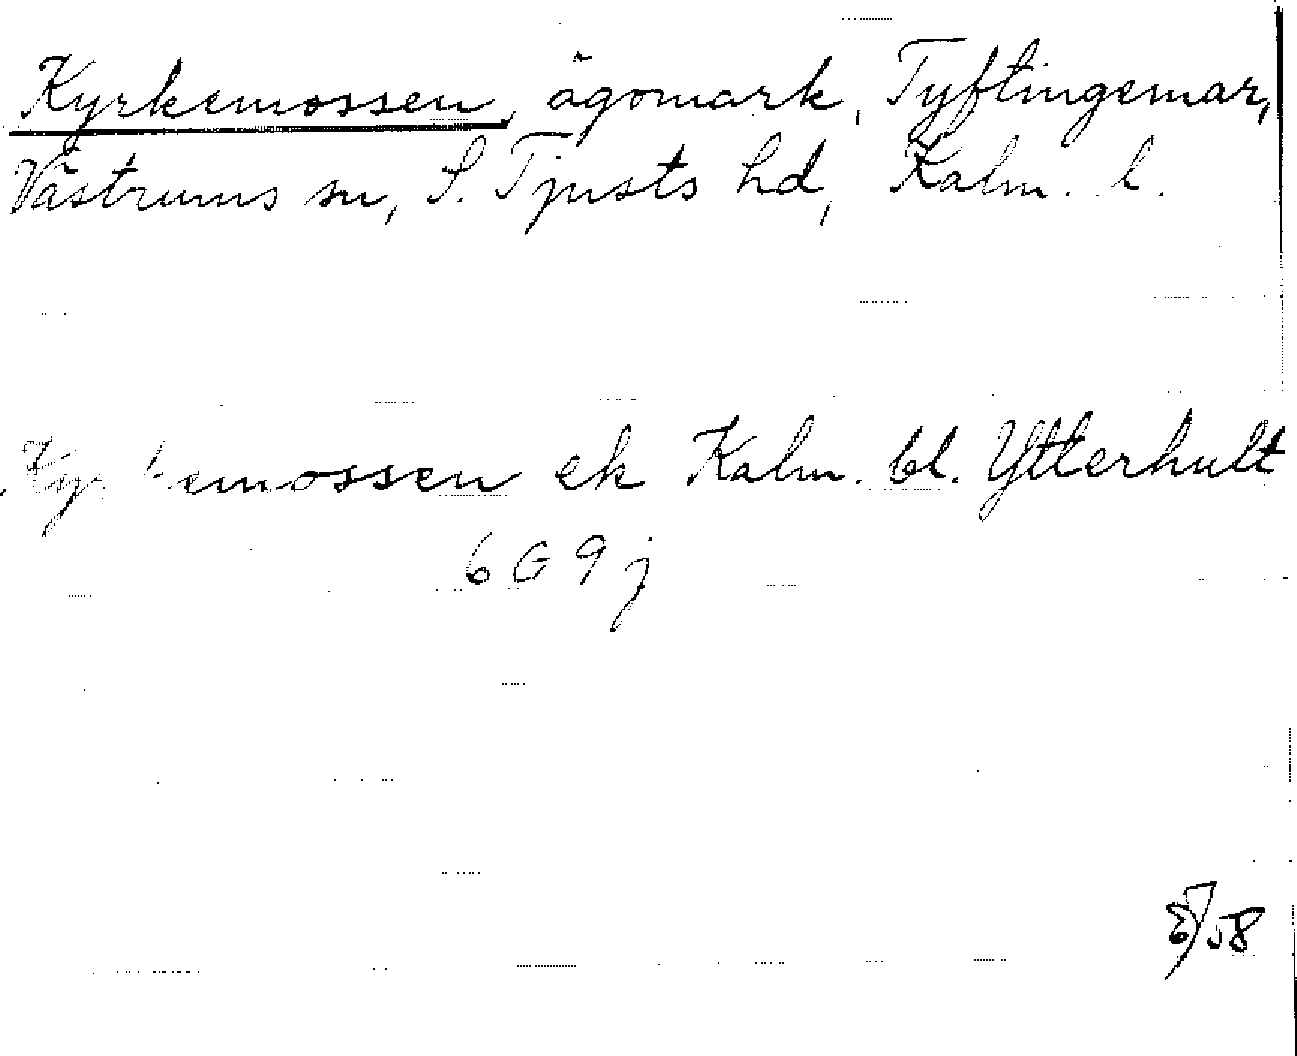 Kyrkemossen, ägomark, Tyftingemar,
Västrums sn, S. Tjusts hd, Kalm. l.
Kyrkemossen ek Kalm. bl. Ytterhult
6G9j